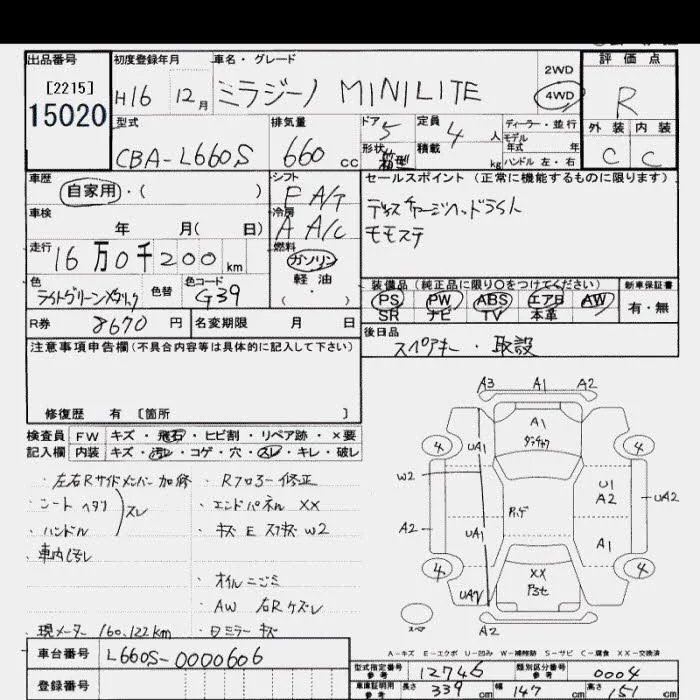 出品番号
[2215]
15020
初度登録年月
H16 12月
車名・グレード
ミラジーノ MINILITE
2WD
4WD
評価点
R
外装 内装
C C
型式
CBA-L660S
排気量
660 cc
ドア 5
形状 箱型
定員 4 人
積載 kg
ディーラー・並行
モデル
年式 年
ハンドル 左・右
車歴
自家用・( )
シフト
F A/T
車検
年 月( 日)
冷房
A A/C
走行
16万0千200km
燃料
ガソリン
軽油
( ・ )
色
ライトグリーンメタリック
色替
色コード
G39
R券 8670円
名変期限 月 日
セールスポイント(正常に機能するものに限ります)
ディスチャージヘッドライト
モモステ
装備品(純正品に限り○をつけてください)
PS PW ABS エアB AW
SR ナビ TV 本革
新車保証書
有・無
後日品
スペアキー・取説
注意事項申告欄(不具合内容等は具体的に記入して下さい)
修復歴 有 [箇所 ]
検査員 FW キズ・飛石・ヒビ割・リペア跡・×要
記入欄 内装 キズ・汚れ・コゲ・穴・スレ・キレ・破レ
・左右Rサイドメンバー加修 ・Rフロアー修正
・シートヘタリ
・ハンドル スレ
・エンドパネルXX
・キズ E スリキズ W2
・車内汚レ
・オイルニジミ
・AW 右Rケズレ
・現メーター160,122km ・Dミラーキズ
車台番号 L660S-0000606
登録番号
A3 A1 A2
A1
4 4
UA1
W2
U1
A2
UA2
A2
UA1
A1
XX
4 4
A2
スペア
A-キズ E-エクボ U-凹み W-補修跡 S-サビ C-腐食 XX-交換済
型式指定番号 12746
類別区分番号 0004
参考
車庫証明用 参考 長さ 339cm 幅 147cm 高さ 151cm